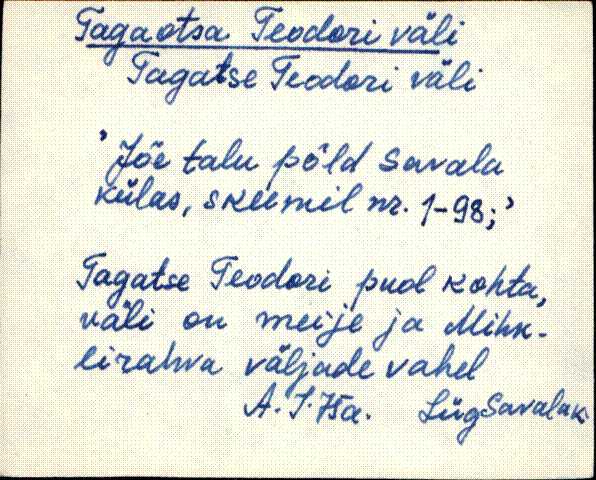 Tagaotsa Teodori väli
Tagatse Teodori väli
'Jõe talu põld Savala
külas, skeemil nr. 1-98;'
Tagatse Teodori puol kohta,
väli on meije ja Mihk-
lirahva väljade vahel
A. J. 75a. Lüg Savala k